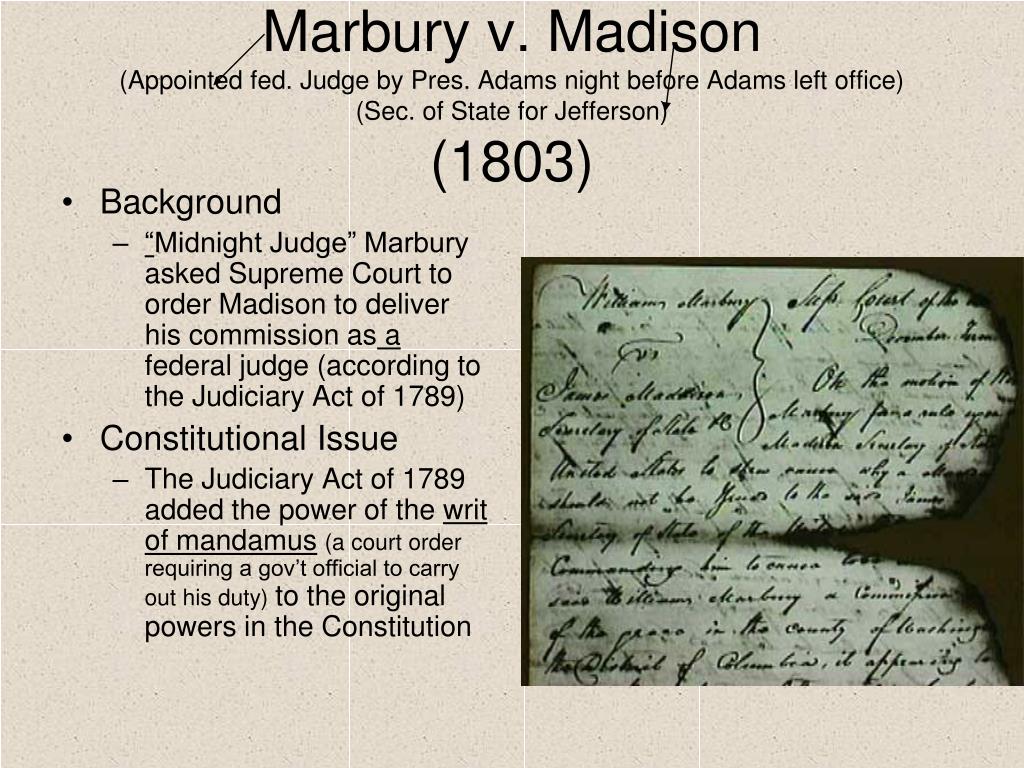 Marbury v. Madison
(Appointed fed. Judge by Pres. Adams night before Adams left office)
(Sec. of State for Jefferson)
(1803)
• Background
– “Midnight Judge” Marbury
asked Supreme Court to
order Madison to deliver
his commission as a
federal judge (according to
the Judiciary Act of 1789)
• Constitutional Issue
– The Judiciary Act of 1789
added the power of the writ
of mandamus (a court order
requiring a gov’t official to carry
out his duty) to the original
powers in the Constitution
William Marbury Sup. Court of the
vs December Term
James Maddison, On the motion of
Secretary of State Marbury for a rule upon
Madison Secretary of State
United States to shew cause why a
should not be to the said James
Secretary of State of the United
Commanding him to cause to be
said William Marbury a Commission
of the peace in the county of Washington
the District of Columbia, it appearing to